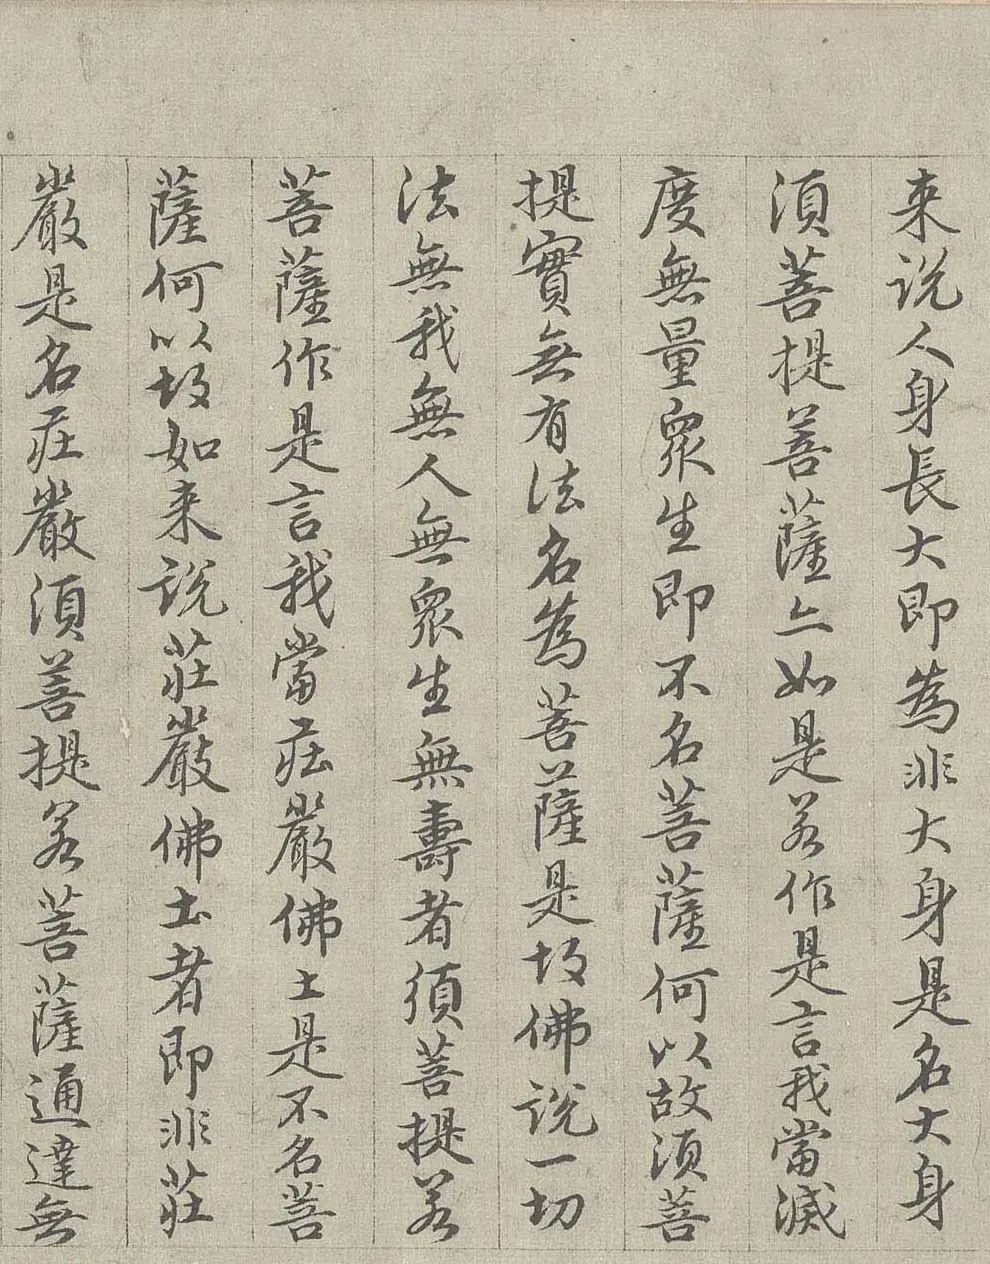 来说人身長大即為非大身是名大身
須菩提菩薩亦如是若作是言我當滅
度無量眾生即不名菩薩何以故須菩
提實無有法名為菩薩是故佛說一切
法無我無人無眾生無壽者須菩提若
菩薩作是言我當莊嚴佛土是不名菩
薩何以故如来說莊嚴佛土者即非莊
嚴是名莊嚴須菩提若菩薩通達無